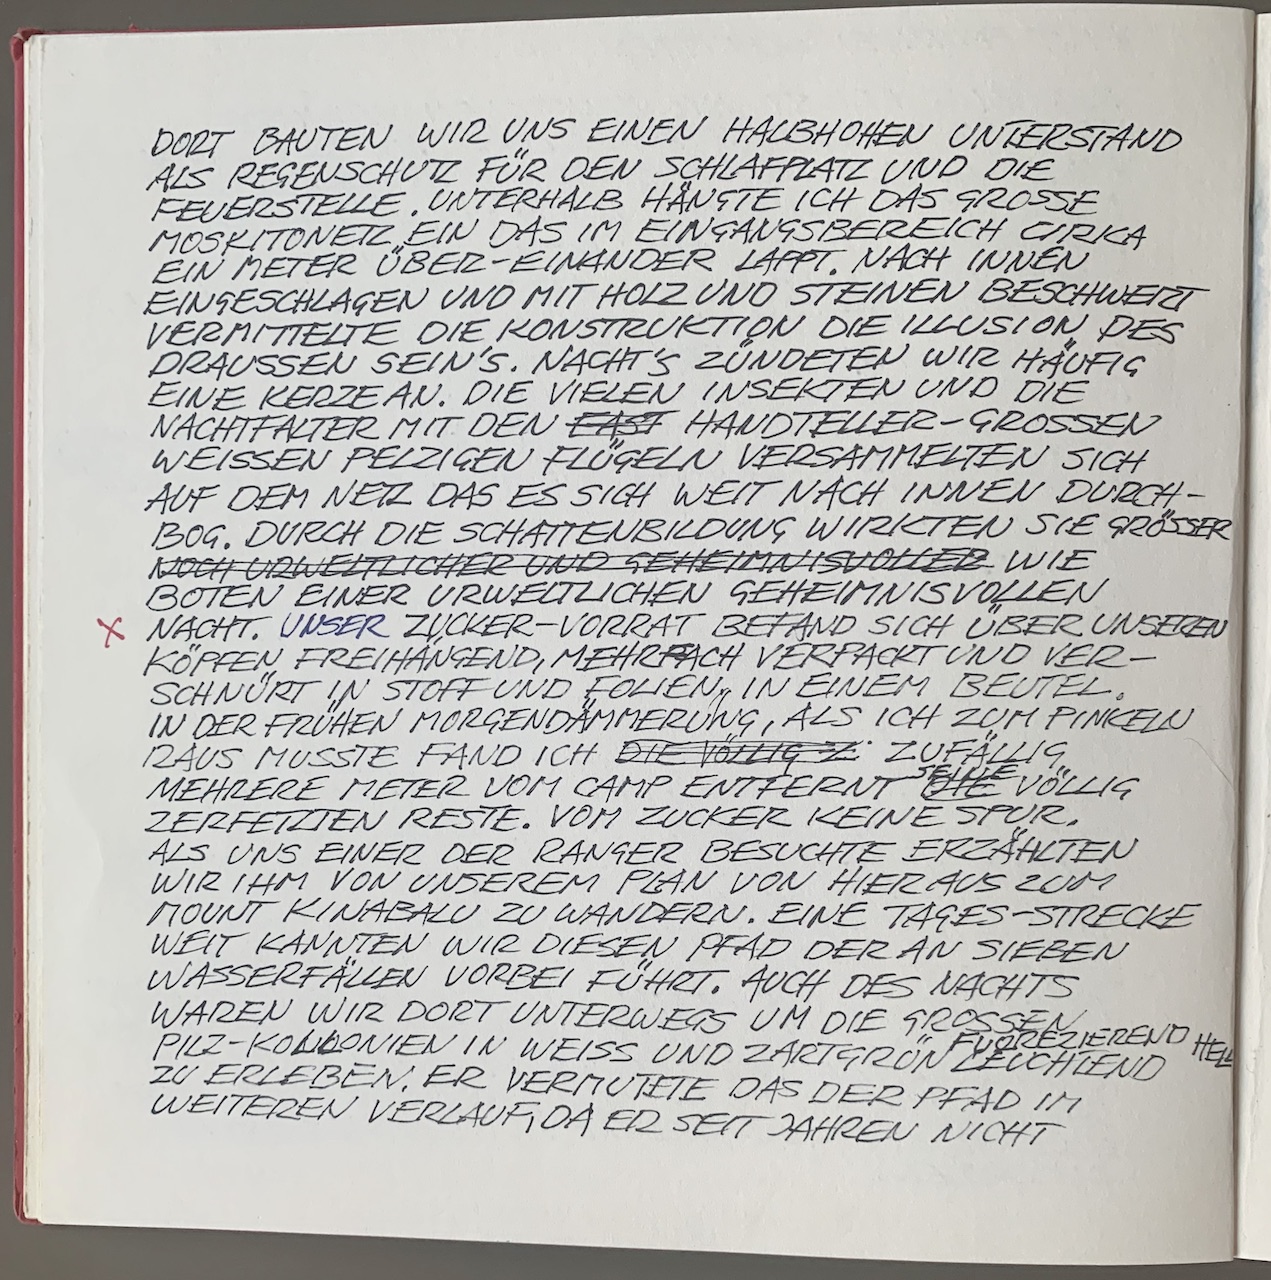 DORT BAUTEN WIR UNS EINEN HALBHOHEN UNTERSTAND
ALS REGENSCHUTZ FÜR DEN SCHLAFPLATZ UND DIE
FEUERSTELLE. UNTERHALB HÄNGTE ICH DAS GROSSE
MOSKITONETZ EIN DAS IM EINGANGSBEREICH CIRKA
EIN METER ÜBER-EINANDER LAPPT. NACH INNEN
EINGESCHLAGEN UND MIT HOLZ UND STEINEN BESCHWERT
VERMITTELTE DIE KONSTRUKTION DIE ILLUSION DES
DRAUSSEN SEIN'S. NACHT'S ZÜNDETEN WIR HÄUFIG
EINE KERZE AN. DIE VIELEN INSEKTEN UND DIE
NACHTFALTER MIT DEN FAST HANDTELLER-GROSSEN
WEISSEN PELZIGEN FLÜGELN VERSAMMELTEN SICH
AUF DEM NETZ DAS ES SICH WEIT NACH INNEN DURCH-
BOG. DURCH DIE SCHATTENBILDUNG WIRKTEN SIE GRÖSSER
NOCH URWELTLICHER UND GEHEIMNISVOLLER WIE
BOTEN EINER URWELTLICHEN GEHEIMNISVOLLEN
X NACHT. UNSER ZUCKER-VORRAT BEFAND SICH ÜBER UNSEREN
KÖPFEN FREIHÄNGEND, MEHRFACH VERPACKT UND VER-
SCHNÜRT IN STOFF UND FOLIEN, IN EINEM BEUTEL.
IN DER FRÜHEN MORGENDÄMMERUNG, ALS ICH ZUM PINKELN
RAUS MUSSTE FAND ICH DIE VÖLLIG Z ZUFÄLLIG
MEHRERE METER VOM CAMP ENTFERNT SEINE VÖLLIG
ZERFETZTEN RESTE. VOM ZUCKER KEINE SPUR.
ALS UNS EINER DER RANGER BESUCHTE ERZÄHLTEN
WIR IHM VON UNSEREM PLAN VON HIER AUS ZUM
MOUNT KINABALU ZU WANDERN. EINE TAGES-STRECKE
WEIT KANNTEN WIR DIESEN PFAD DER AN SIEBEN
WASSERFÄLLEN VORBEI FÜHRT. AUCH DES NACHTS
WAREN WIR DORT UNTERWEGS UM DIE GROSSEN
PILZ-KOLLONIEN IN WEISS UND ZARTGRÜN FLUOREZIEREND HELL LEUCHTEND
ZU ERLEBEN. ER VERMUTETE DAS DER PFAD IM
WEITEREN VERLAUF, DA ER SEIT JAHREN NICHT